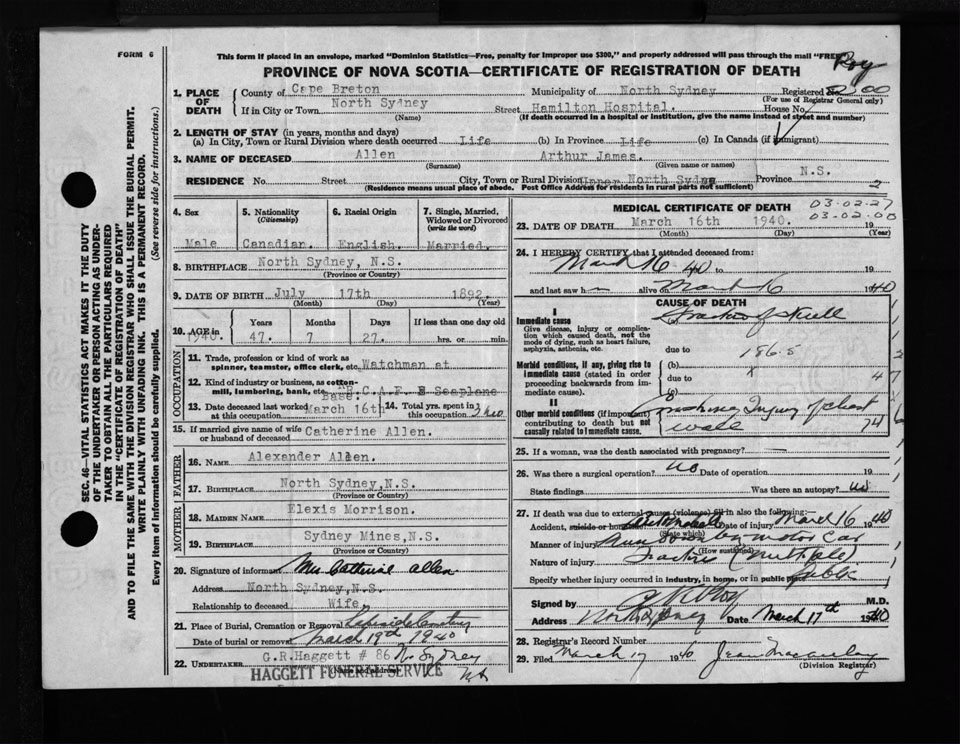 FORM 6
This form if placed in an envelope, marked "Dominion Statistics—Free, penalty for improper use $300," and properly addressed will pass through the mail "FREE"
Roy
PROVINCE OF NOVA SCOTIA—CERTIFICATE OF REGISTRATION OF DEATH
1. PLACE OF DEATH
County of Cape Breton Municipality of North Sydney Registered No.
(For use of Registrar General only)
If in City or Town North Sydney Street Hamilton Hospital. House No.
(Name) (If death occurred in a hospital or institution, give the name instead of street and number)
2. LENGTH OF STAY (in years, months and days)
(a) In City, Town or Rural Division where death occurred Life (b) In Province Life (c) In Canada (if immigrant)
3. NAME OF DECEASED Allen Arthur James.
(Surname) (Given name or names)
RESIDENCE No. Street City, Town or Rural Division Upper North Sydney Province N.S.
(Residence means usual place of abode. Post Office Address for residents in rural parts not sufficient)
2
4. Sex
Male
5. Nationality (Citizenship)
Canadian.
6. Racial Origin
English.
7. Single, Married, Widowed or Divorced (write the word)
Married.
8. BIRTHPLACE North Sydney, N.S.
(Province or Country)
9. DATE OF BIRTH July 17th 1892.
(Month) (Day) (Year)
10. AGE in 1940.
Years Months Days If less than one day old
47. 7 27. hrs. or min.
OCCUPATION
11. Trade, profession or kind of work as spinner, teamster, office clerk, etc. Watchman at
12. Kind of industry or business, as cotton-mill, lumbering, bank, etc. R.C.A.F. Seaplane
Base.
13. Date deceased last worked at this occupation March 16th
14. Total yrs. spent in this occupation
15. If married give name of wife or husband of deceased Catherine Allen.
FATHER
16. Name Alexander Allen.
17. Birthplace North Sydney, N.S.
(Province or Country)
MOTHER
18. Maiden Name Elexis Morrison.
19. Birthplace Sydney Mines, N.S.
(Province or Country)
20. Signature of informant Mrs Catherine Allen
Address North Sydney, N.S.
Relationship to deceased Wife,
21. Place of Burial, Cremation or Removal Lakeside Cemetery
Date of burial or removal March 19th 1940
22. UNDERTAKER G.R.Haggett # 86 N. Sydney
HAGGETT FUNERAL SERVICE NS
MEDICAL CERTIFICATE OF DEATH
03-02-27
03-02-00
23. DATE OF DEATH March 16th 1940. 19
(Month) (Day) (Year)
24. I HEREBY CERTIFY that I attended deceased from:
March 16 - 40 to 19
and last saw h m alive on March 16 1940
CAUSE OF DEATH
I
Immediate cause
Give disease, injury or complication which caused death, not the mode of dying, such as heart failure, asphyxia, asthenia, etc.
(a) Fracture of Skull
due to 186.5
Morbid conditions, if any, giving rise to immediate cause (stated in order proceeding backwards from immediate cause).
(b)
due to
(c)
II
Other morbid conditions (if important) contributing to death but not causally related to immediate cause.
Crushing Injury of chest
wall 74
25. If a woman, was the death associated with pregnancy?
26. Was there a surgical operation? No Date of operation 19
State findings Was there an autopsy? No
27. If death was due to external causes (violence) fill in also the following:
Accident, suicide or homicide Automobile Date of injury March 16 1940
(State which)
Manner of injury Run over by motor car
(How sustained)
Nature of injury Fracture (Multiple)
Specify whether injury occurred in industry, in home, or in public place Public
Signed by M.D.
Address North Sydney Date March 17th 1940
28. Registrar's Record Number
29. Filed March 17 1940 Jean Macaulay
(Division Registrar)
SEC. 46—VITAL STATISTICS ACT MAKES IT THE DUTY
OF THE UNDERTAKER OR PERSON ACTING AS UNDER-
TAKER TO OBTAIN ALL THE PARTICULARS REQUIRED
IN THE "CERTIFICATE OF REGISTRATION OF DEATH"
AND TO FILE THE SAME WITH THE DIVISION REGISTRAR WHO SHALL ISSUE THE BURIAL PERMIT.
WRITE PLAINLY WITH UNFADING INK. THIS IS A PERMANENT RECORD.
Every item of information should be carefully supplied. (See reverse side for instructions.)